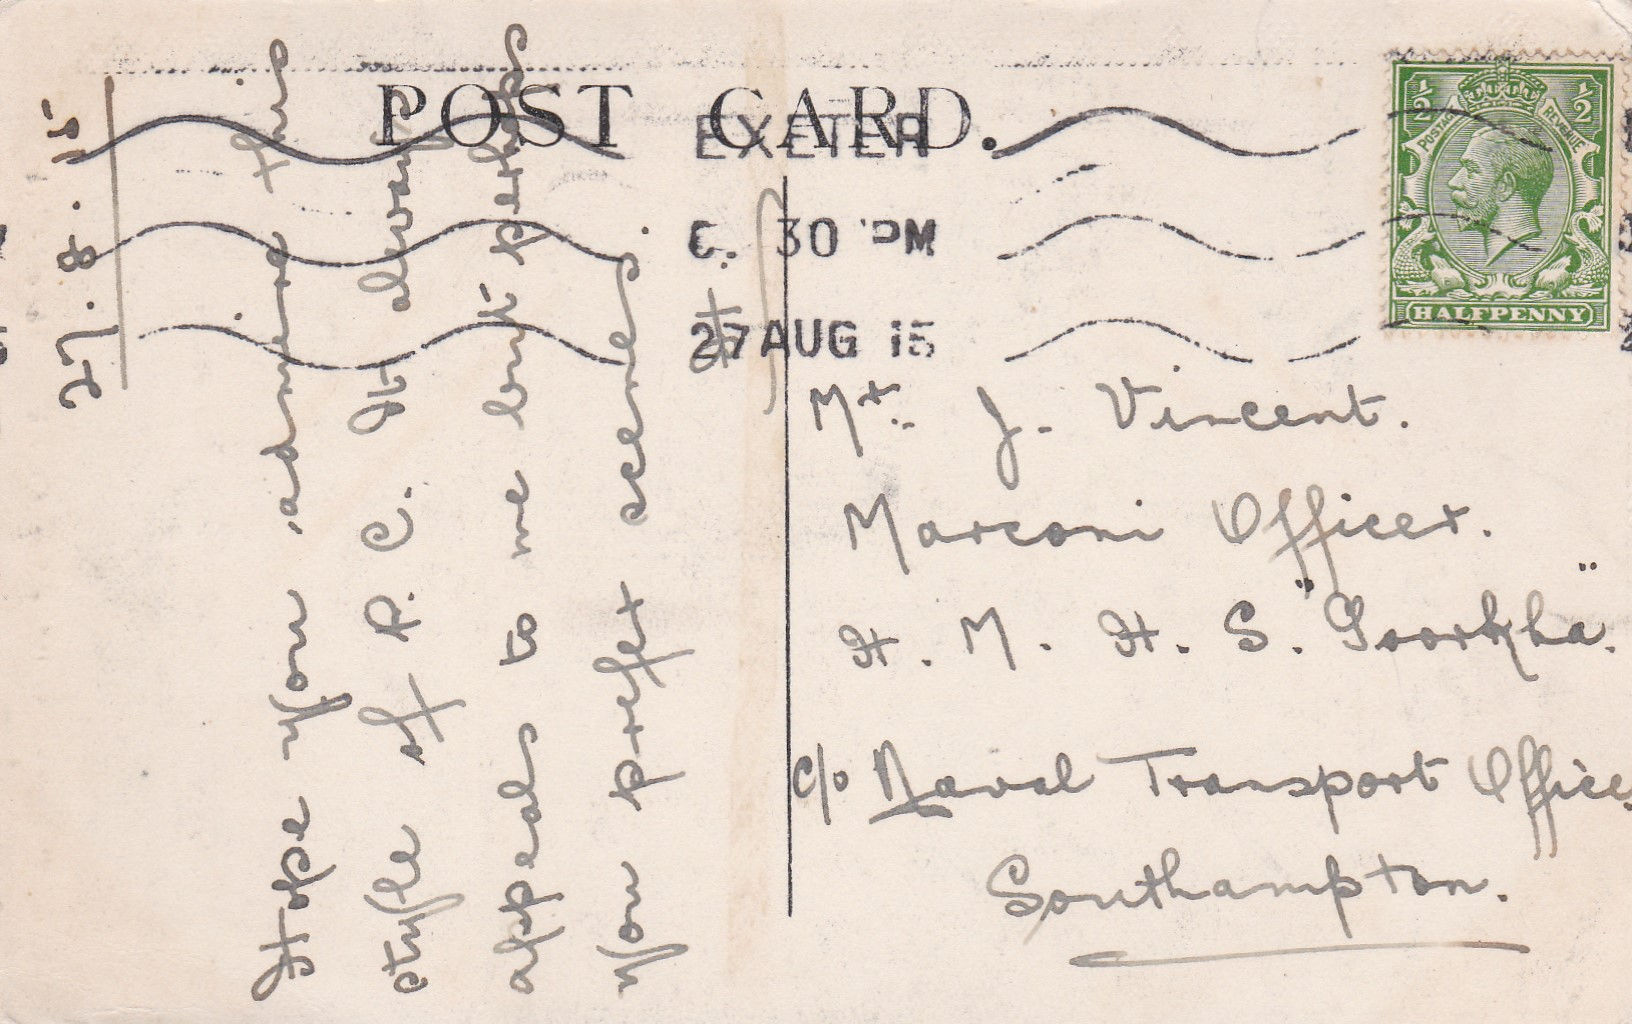 POST CARD.
EXETER
30 PM
27 AUG 15
½ ½
POSTAGE REVENUE
HALFPENNY
27.8.15
Hope you admire this
style of P.C. It always
appeals to me but perhaps
you prefer scenes.
Mr. J. Vincent.
Marconi Officer.
H.M.H.S. "Goorkha".
c/o Naval Transport Office
Southampton.